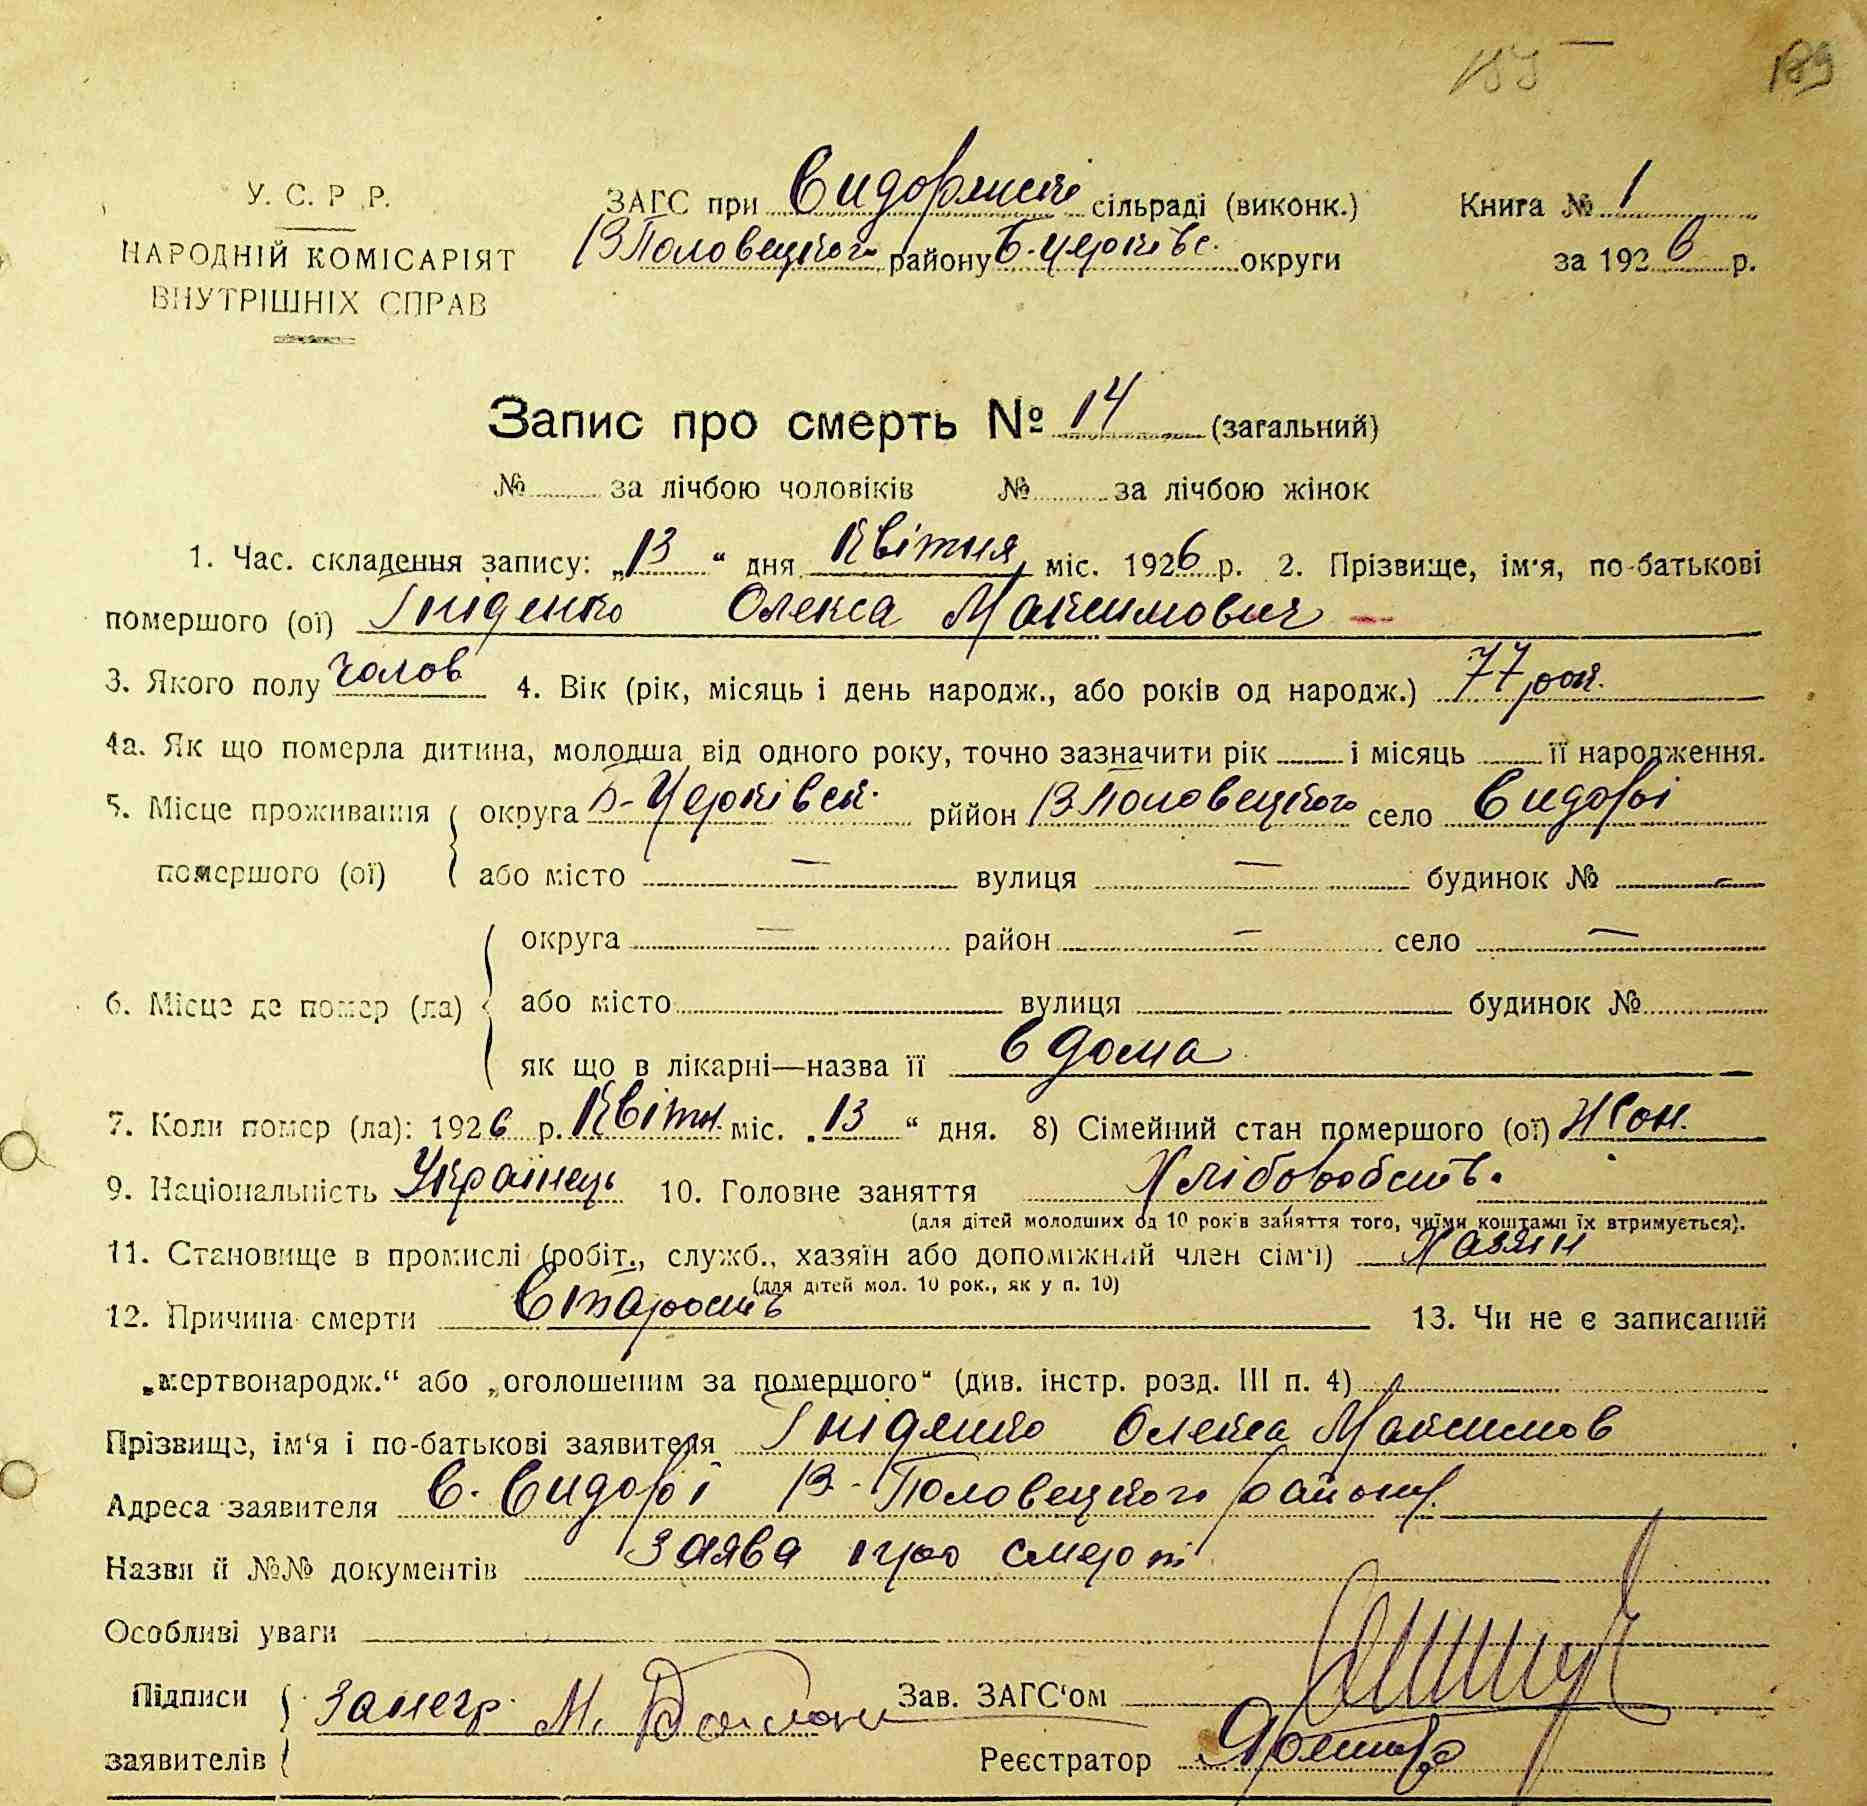 189
У. С. Р. Р.
НАРОДНІЙ КОМІСАРІЯТ
ВНУТРІШНІХ СПРАВ
ЗАГС при сільраді (виконк.)
В Половецкого району Б-Церківс. округи
Книга № 1
за 1926 р.
Запис про смерть № 14 (загальний)
№ за лічбою чоловіків № за лічбою жінок
1. Час. складення запису: „13“ дня Квітня міс. 1926 р. 2. Прізвище, ім'я, по-батькові
помершого (ої) Гніденко Олекса Максимович
3. Якого полу чолов 4. Вік (рік, місяць і день народж., або років од народж.) 77 рок.
4а. Як що померла дитина, молодша від одного року, точно зазначити рік і місяць її народження.
5. Місце проживання округа Б-Церківськ. рййон В Половецкого село
помершого (ої) або місто — вулиця — будинок № —
округа — район — село —
6. Місце де помер (ла) або місто вулиця будинок №
як що в лікарні—назва її в дома
7. Коли помер (ла): 1926 р. Квітн. міс. „13“ дня. 8) Сімейний стан помершого (ої) Жон.
9. Національність Українець 10. Головне заняття Хліборобств.
(для дітей молодших од 10 років заняття того, чиїми коштами їх втримується).
11. Становище в промислі (робіт., служб., хазяїн або допоміжний член сім'ї) Хазяин
(для дітей мол. 10 рок., як у п. 10)
12. Причина смерти Старость 13. Чи не є записаний
„мертвонародж.“ або „оголошеним за померщого“ (див. інстр. розд. III п. 4)
Прізвище, ім'я і по-батькові заявителя Олекса Максимов
Адреса заявителя с. В-Половецкого району.
Назви й №№ документів Заява про смерт
Особливі уваги
Підписи М. Зав. ЗАГС'ом
заявителів Реєстратор